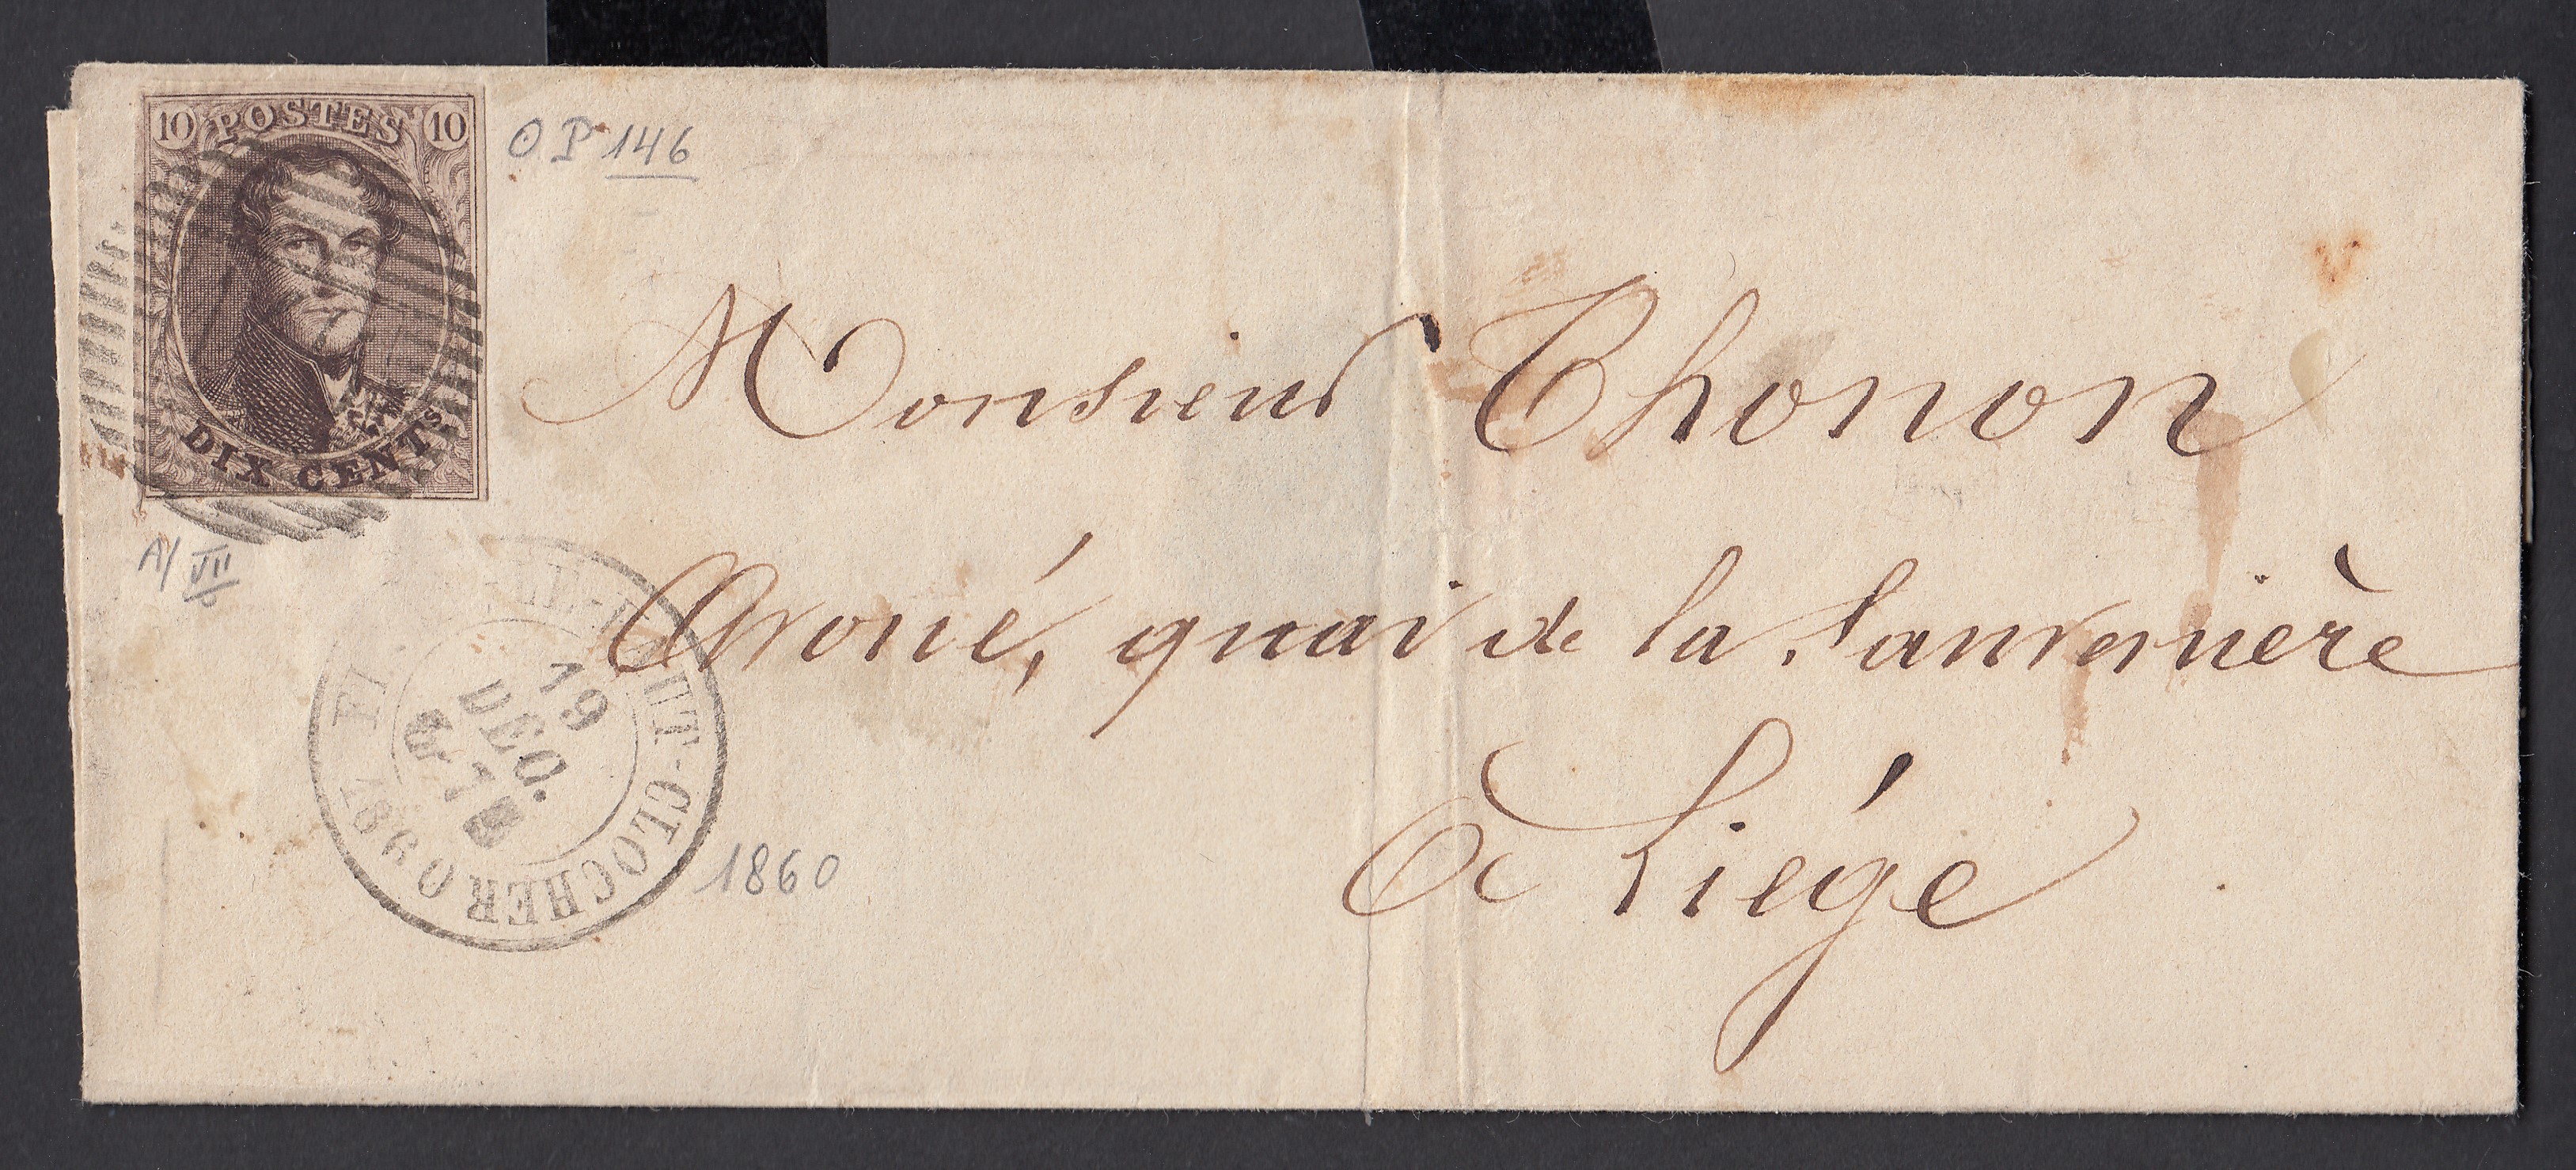 10 POSTES 10
DIX CENTS
O P 146
A/ VII
Monsieur Thonon
Avoué, quai de la Sauvenière
à Liége
HAUT-CLOCHER
19
DEC.
1860
1860